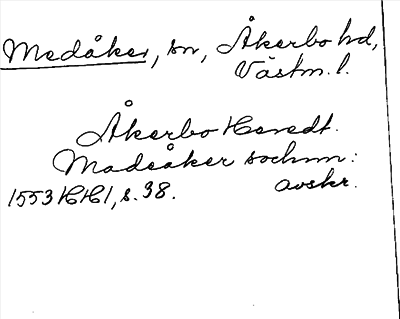 Medåker, sn, Åkerbo hd,
Västm. l.
Åkerbo Heredt.
Madeåker sochnn:
1553 HH1, s. 38. avskr.